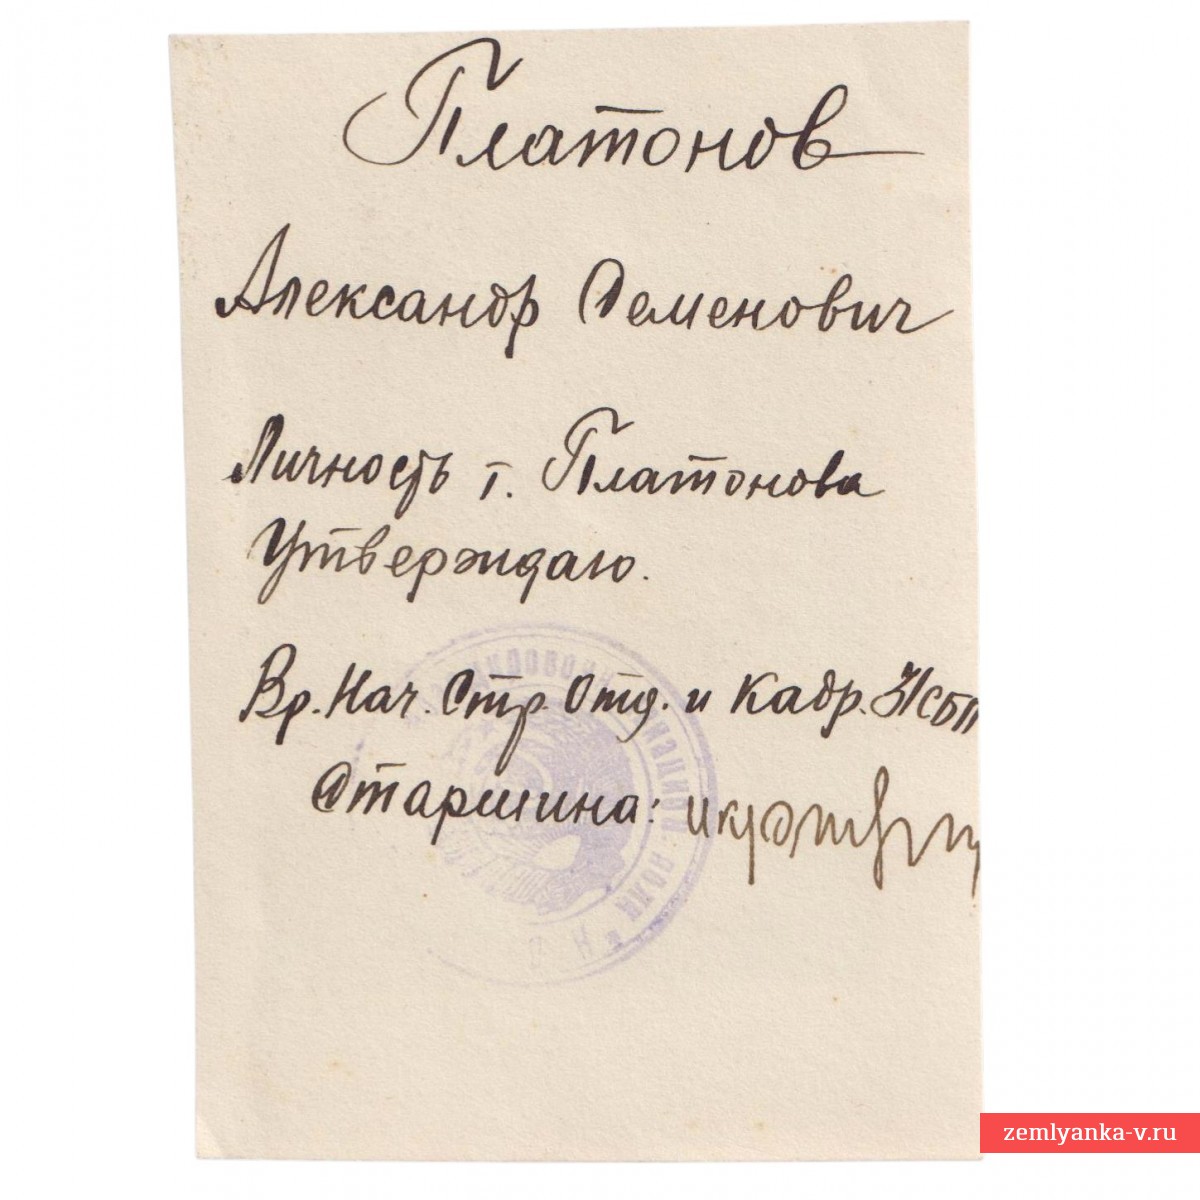 Платонов
Александр Семенович
Личность т. Платонова
Утверждаю.
Вр. Нач. Стр. Отд. и Кадр.
Старшина:
zemlyanka-v.ru